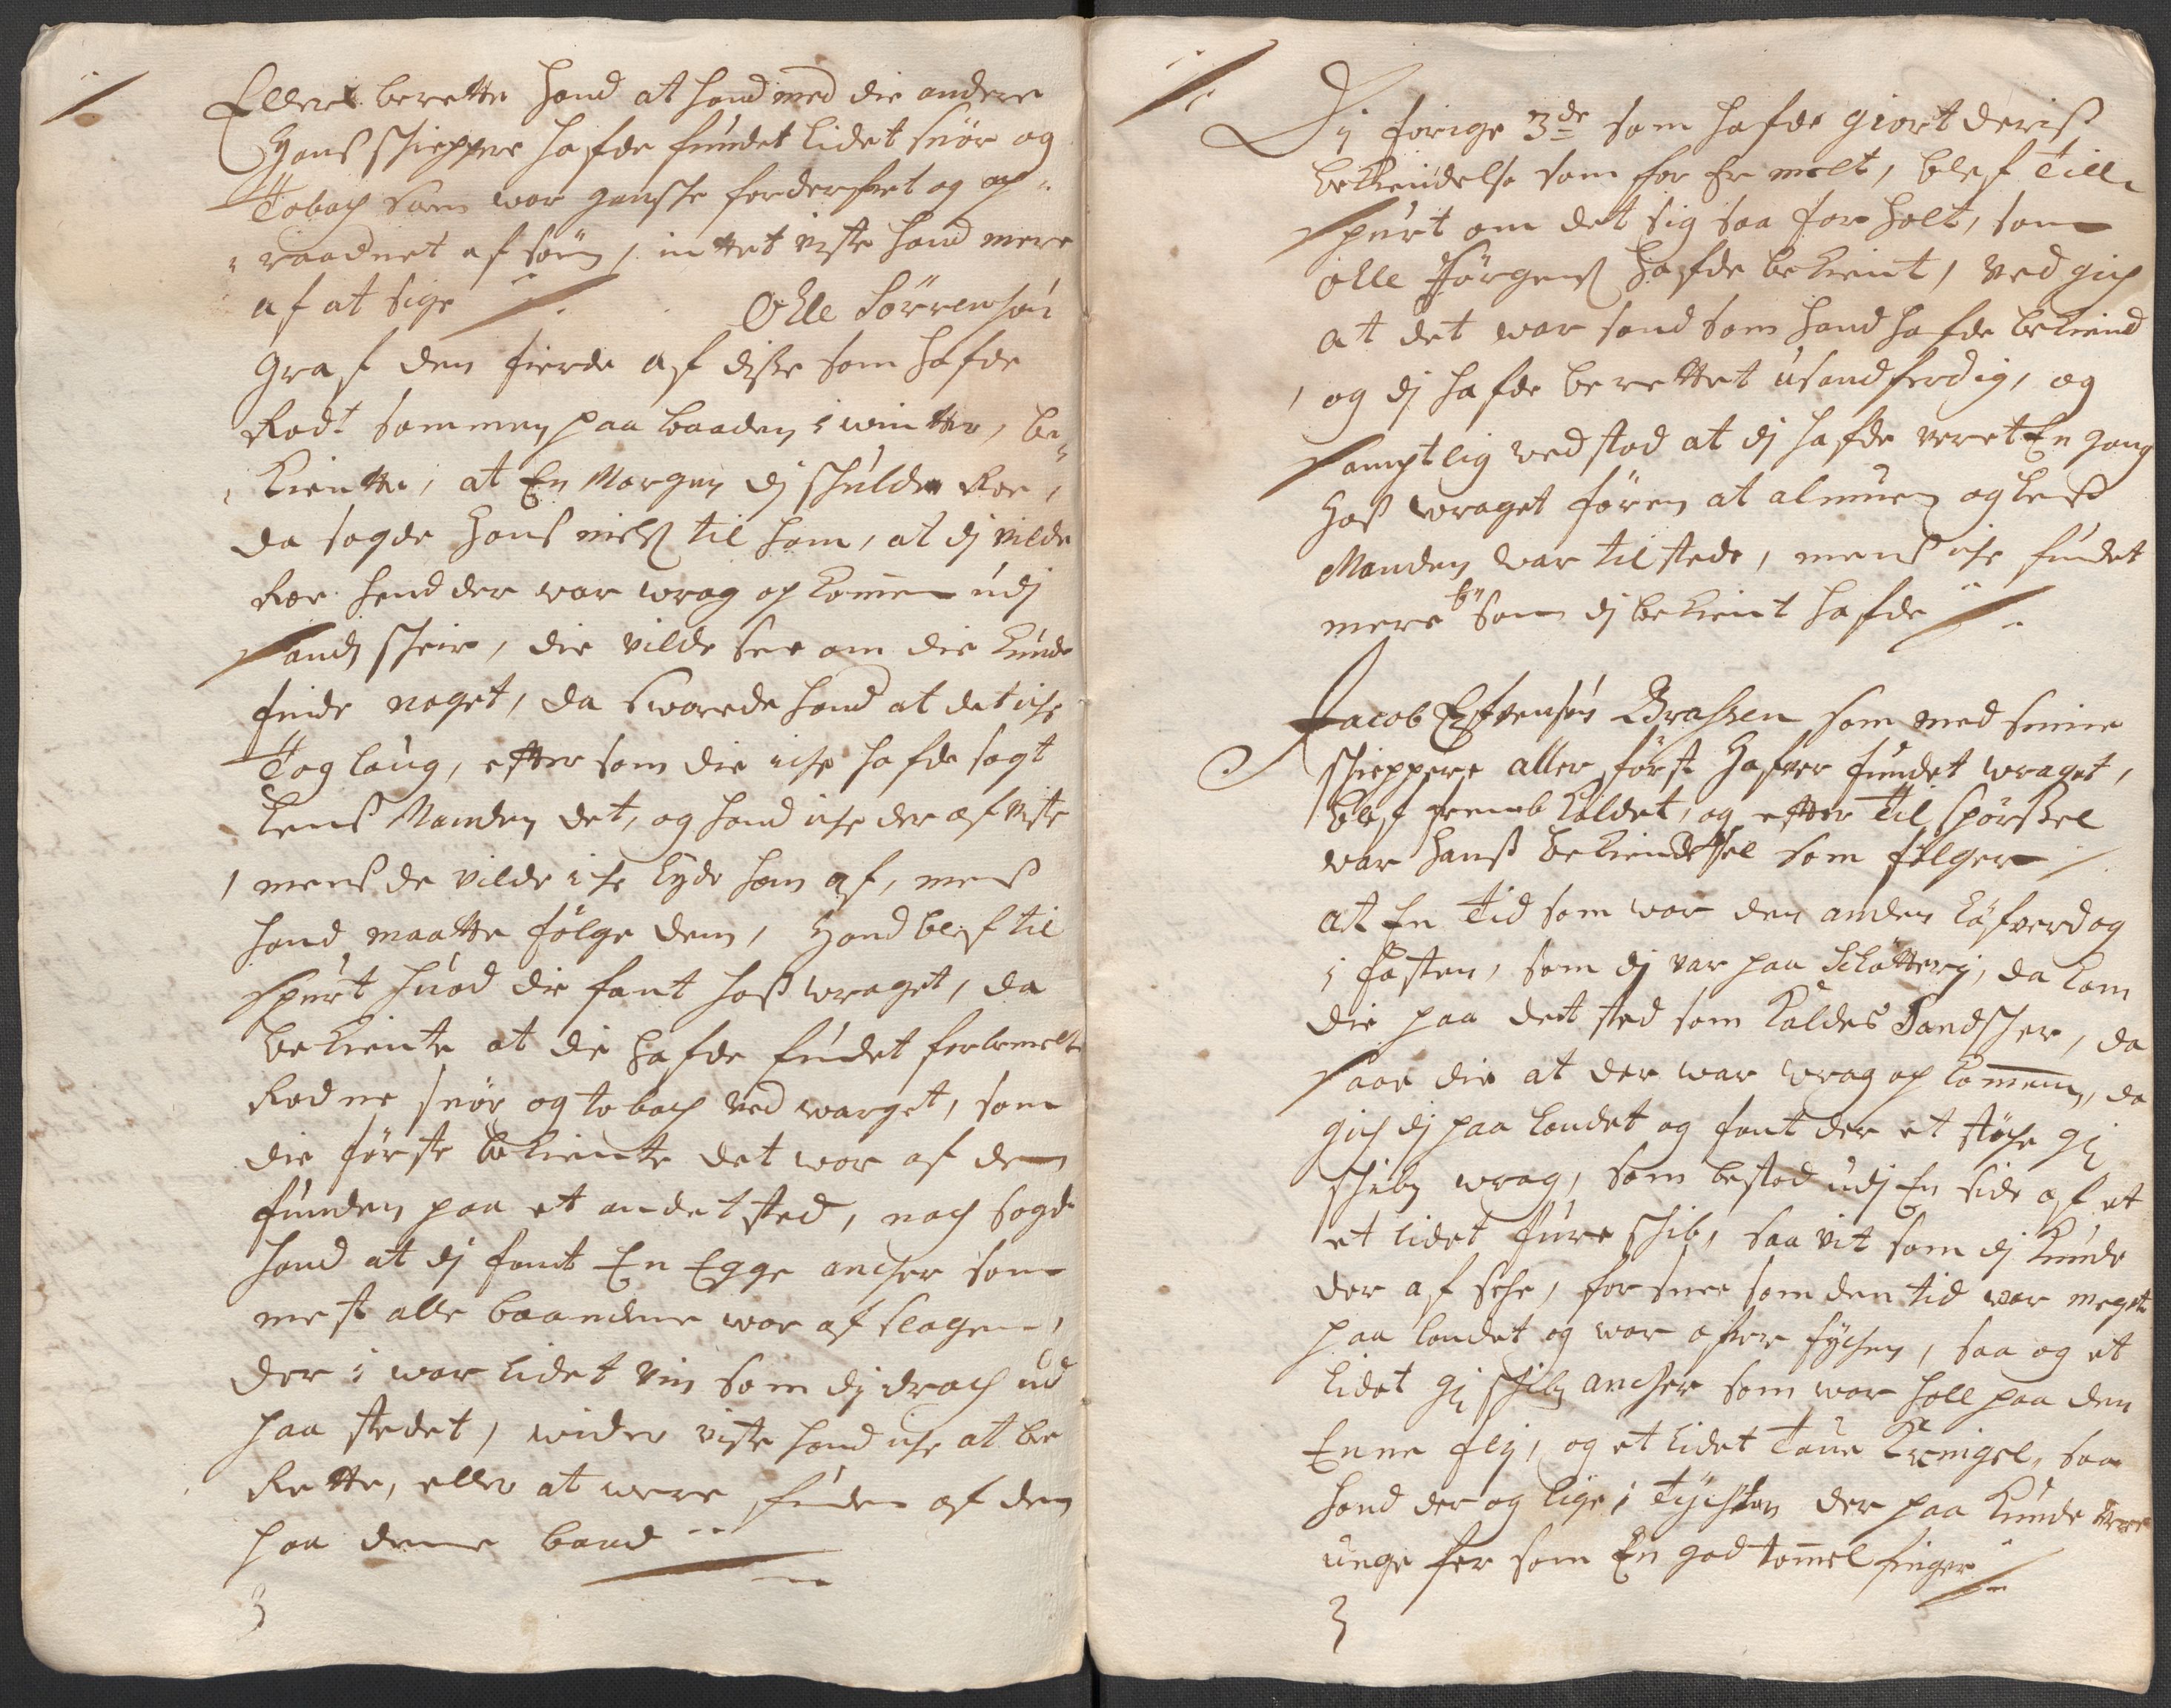 Ellers berette hand at hand med die andere
Hans schieppere hafde fundet lidet snör og
Toback som war gansche forderfvet og op¬
raadnet af söen, inttet viste hand mere
af at sige ⁒ Olle Sörrensön
Graf den fierde af disse som hafde
Rodt sammen paa baaden i wintter, be¬
kientte, at En Morgen dj schulde Roe,
da sagde Hans niels til ham, at dj vilde
Roe hend der war wrag op kommen udj
Sandscheir, die vilde see om die kunde
finde noget, da swarede hand at det iche
Tog laug, efftersom die iche hafde sagt
Lens Manden det, og hand iche der af viste
mens de vilde iche lyde ham af, mens
hand maatte fölge dem, Hand blef til
spurt huad die fant hos wraget, da
bekiente at die hafde fundet forbemelte
Rodne snör og toback ved warget, som
die förste bekiente det war af dem
funden paa et andet sted, noch sagde
hand at dj fandt En Egge ancher som
mest alle baandene war af slagen,
der i war lidet vin som dj drack ud
paa stedet, wider viste hand iche at be
Rette, eller at were funden af dem
paa denne baad ⁒
3
Dj forige 3de som hafde giort deris
bekiendelse som for er melt, blef Till¬
spurt om det sig saa forholt, som
Olle Jörgens hafde bekient, ved gich
at det war sand som hand hafde bekiend
og dj hafde berettet usandferdig, og
samptlig wedstod at dj hafde veret En gang
Hos wraget fören at almuen og Lens
Manden war tilstede, mens iche fundet
mere som dj bekient hafde ⁒
Jacob Efvensön Brassen som med sinne
schieppere aller först hafver fundet wraget,
blef fremb kaldet, og effter Tilspörssel
war hans bekiendelse som fölger
at En Tid som war den anden Löfverdag
i fasten, som dj war paa Schötterj, da kom
die paa det sted som kaldes Sandscher, da
saae die at der war wrag op kommen, da
gich dj paa landet og fant der et støche gl
schibs wrag, som bestod udj En side af et
et lidet fure schib, saa vit som dj kunde
der af sehe, for snee som den tid war meget
paa landet og war ofver fychen, saa og et
lidet gl schibs ancher som war holl paa den
Enne fly, og et lidet Taue Krengel, saa
hand der og lige i Tyckten der paa kunde were
ungefer som En god tommel finger ⁒
3